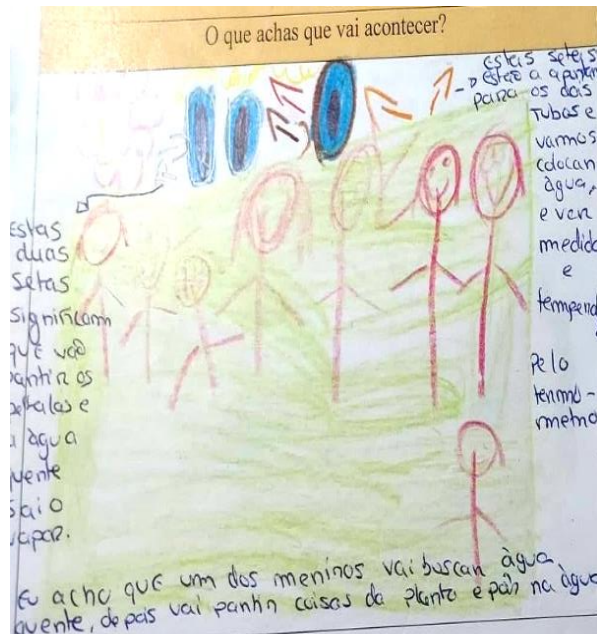 O que achas que vai acontecer?
estas setas
estão a apontar
para os dois
tubos e
vamos
colocar
água,
e ver
medida
e
tempera
pelo
termó-
metro
Estas
duas
setas
significam
que vão
partir os
petalas e
a água
quente
sai o
vapor.
Eu acho que um dos meninos vai buscar água
quente, depois vai partir coisas da planta e pôr na água